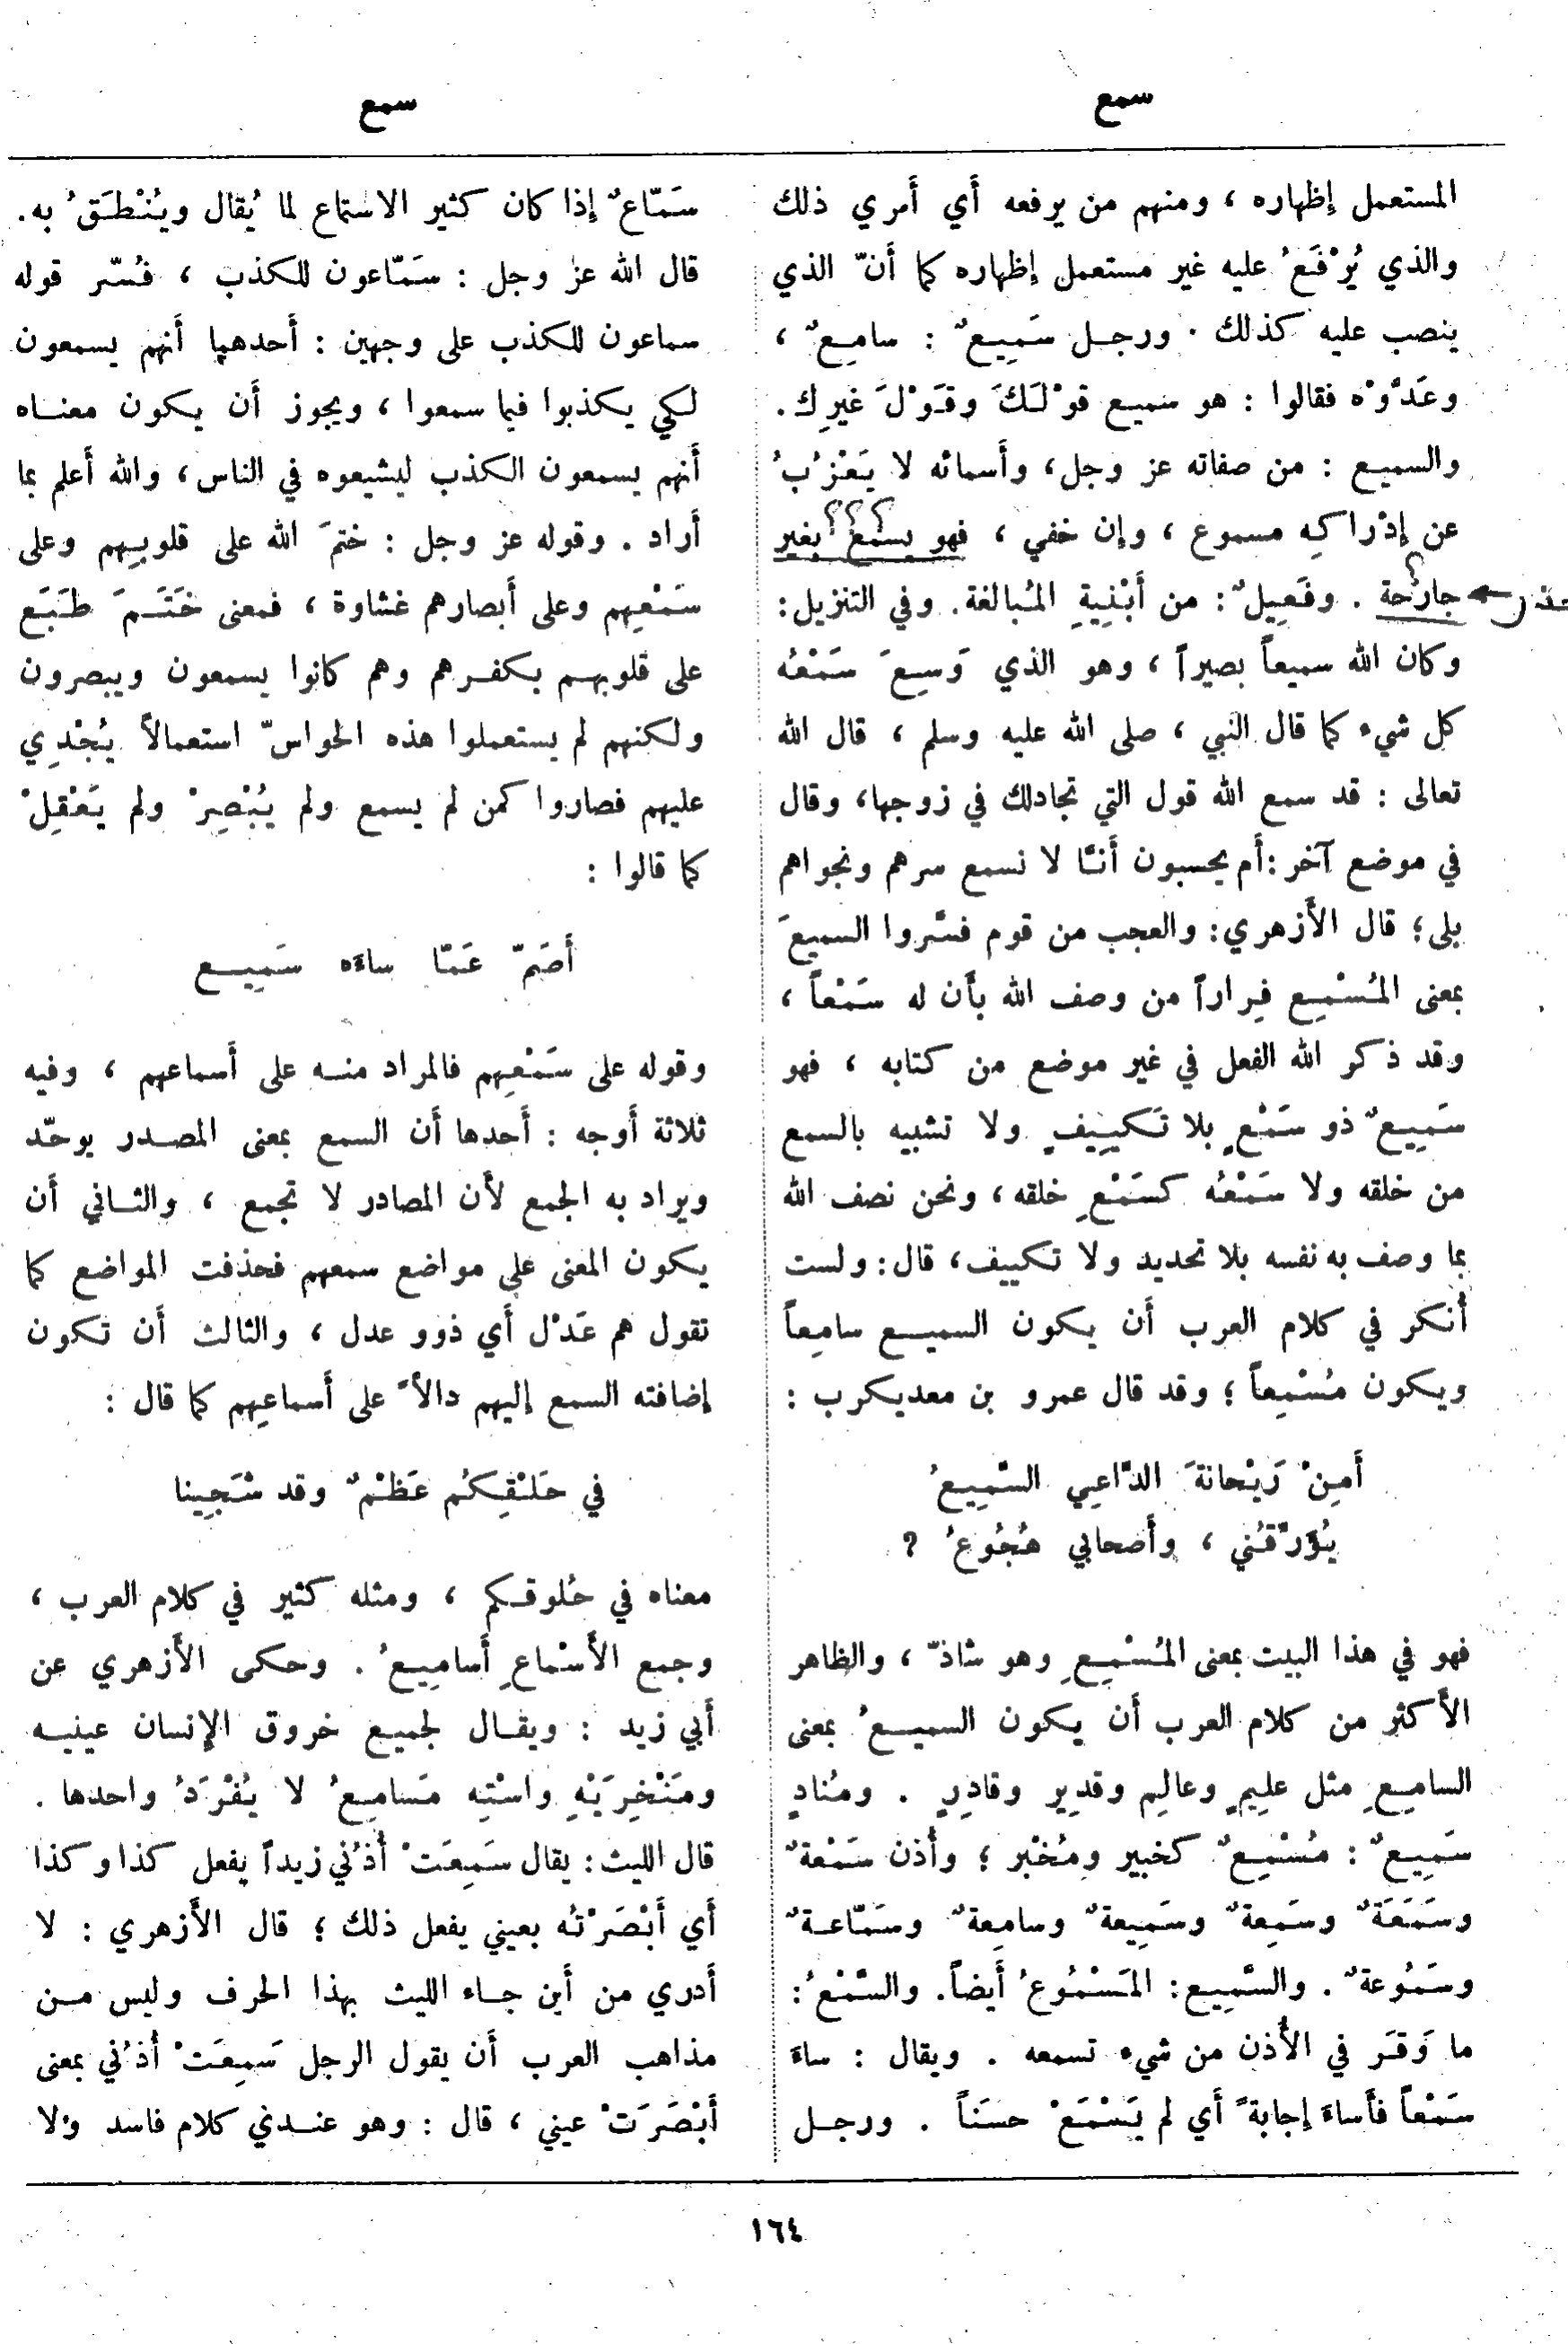 سمع
سمع
المستعمل إظهاره ، ومنهم من يرفعه أي أمري ذلك
والذي يُرْفَعُ عليه غير مستعمل إظهاره كما أنّ الذي
ينصب عليه كذلك . ورجل سَمِيعٌ : سامِعٌ ،
وعَدَّوْه فقالوا : هو سميع قوْلَكَ وقَوْلَ غيرِك .
والسميع : من صفاته عز وجل، وأسمائه لا يَعْزُبُ
عن إدْراكِه مسموع ، وإن خفي ، فهو يسمع بغير
جارحة . وفَعِيلٌ : من أَبْنِيةِ المُبالغة . وفي التنزيل :
وكان الله سميعاً بصيراً ، وهو الذي وَسِعَ سَمْعُه
كل شيء كما قال النبي ، صلى الله عليه وسلم ، قال الله
تعالى : قد سمع الله قول التي تجادلك في زوجها، وقال
في موضع آخر : أم يحسبون أنّا لا نسمع سرهم ونجواهم
بلى؛ قال الأزهري : والعجب من قوم فسَّروا السميعَ
بمعنى المُسْمِع فِراراً من وصف الله بأن له سَمْعاً ،
وقد ذكر الله الفعل في غير موضع من كتابه ، فهو
سَمِيعٌ ذو سَمْعٍ بلا تَكْيِيفٍ ولا تشبيه بالسمع
من خلقه ولا سَمْعُه كسَمْعِ خلقه ، ونحن نصف الله
بما وصف به نفسه بلا تحديد ولا تكييف، قال : ولست
أُنكر في كلام العرب أن يكون السميع سامِعاً
ويكون مُسْمِعاً ؛ وقد قال عمرو بن معديكرب :
أَمِنْ رَيْحانةَ الدَّاعِي السَّمِيعُ
يُؤَرِّقُني ، وأَصحابي هُجُوعُ ؟
فهو في هذا البيت بمعنى المُسْمِعِ وهو شاذّ ، والظاهر
الأكثر من كلام العرب أن يكون السميعُ بمعنى
السامِعِ مثل علِيمٍ وعالِم وقدِير وقادِرٍ . ومُنادٍ
سَمِيعٌ : مُسْمِعٌ كخبير ومُخْبر ؛ وأُذن سَمْعةٌ
وسَمَعَةٌ وسَمِعةٌ وسَمِيعةٌ وسامِعةٌ وسَمّاعةٌ
وسَمُوعةٌ . والسَّمِيع : المَسْمُوعُ أيضاً. والسَّمْعُ :
ما وَقَر في الأُذن من شيء تسمعه . ويقال : ساءَ
سَمْعاً فأَساءَ إجابةً أي لم يَسْمَعْ حسَناً . ورجل
سَمّاعٌ إذا كان كثير الاستماع لما يُقال ويُنْطَقُ به .
قال الله عز وجل : سَمّاعون للكذب ، فُسّر قوله
سماعون للكذب على وجهين : أحدهما أنهم يسمعون
لكي يكذبوا فيما سمعوا ، ويجوز أن يكون معناه
أنهم يسمعون الكذب ليشيعوه في الناس ، والله أعلم بما
أراد . وقوله عز وجل : ختمَ الله على قلوبِهم وعلى
سَمْعِهم وعلى أبصارهم غشاوة ، فمعنى خَتَمَ طَبَع
على قلوبهم بكفرهم وهم كانوا يسمعون ويبصرون
ولكنهم لم يستعملوا هذه الحواسّ استعمالاً يُجْدِي
عليهم فصاروا كمن لم يسمع ولم يُبْصِرْ ولم يَعْقِلْ
كما قالوا :
أَصَمّ عَمّا ساءَه سَمِيع
وقوله على سَمْعِهم فالمراد منه على أسماعهم ، وفيه
ثلاثة أوجه : أحدها أن السمع بمعنى المصدر يوحّد
ويراد به الجمع لأن المصادر لا تجمع ، والثاني أن
يكون المعنى على مواضع سمعهم فحذفت المواضع كما
تقول هم عَدْل أي ذوو عدل ، والثالث أن تكون
إضافته السمع إليهم دالاًّ على أسماعِهم كما قال :
في حَلْقِكُم عَظْمٌ وقد شَجِينا
معناه في حُلوقكم ، ومثله كثير في كلام العرب ،
وجمع الأسْماعِ أَسامِيعُ . وحكى الأزهري عن
أبي زيد : ويقال لجميع خروق الإنسان عينيه
ومَنْخِرَيْهِ واسْتِه مَسامِعُ لا يُفْرَدُ واحدها .
قال الليث : يقال سَمِعَتْ أُذُني زيداً يفعل كذا وكذا
أي أَبْصَرْتُه بعيني يفعل ذلك ؛ قال الأزهري : لا
أدري من أين جاء الليث بهذا الحرف وليس من
مذاهب العرب أن يقول الرجل سَمِعَتْ أُذُني بمعنى
أَبْصَرَتْ عيني ، قال : وهو عندي كلام فاسد ولا
١٦٤